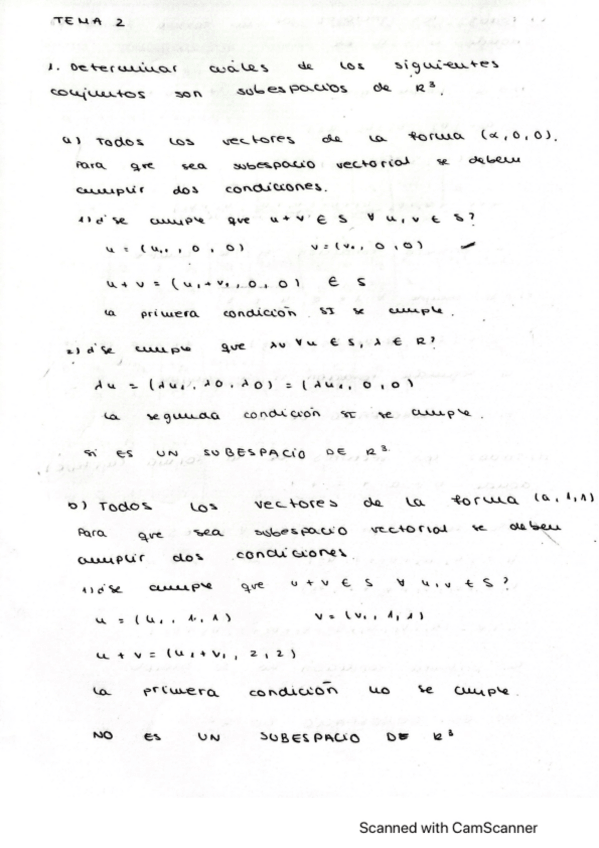 TEMA 2
1. Determinar cuáles de los siguientes
conjuntos son subespacios de R³.
a) Todos los vectores de la forma (α,0,0).
Para que sea subespacio vectorial se deben
cumplir dos condiciones.
1) ¿se cumple que u+v ∈ S ∀ u,v ∈ S?
u = (u₁, 0, 0) v = (v₁, 0, 0)
u+v = (u₁+v₁, 0, 0) ∈ S
la primera condición SI se cumple.
2) ¿se cumple que λu ∀u ∈ S, λ ∈ R?
λu = (λu₁, λ0, λ0) = (λu₁, 0, 0)
la segunda condición SI se cumple.
SI ES UN SUBESPACIO DE R³
b) Todos los vectores de la forma (a,1,1)
Para que sea subespacio vectorial se deben
cumplir dos condiciones.
1) ¿se cumple que u+v ∈ S ∀ u,v ∈ S?
u = (u₁, 1, 1) v = (v₁, 1, 1)
u+v = (u₁+v₁, 2, 2)
la primera condición no se cumple.
NO ES UN SUBESPACIO DE R³
Scanned with CamScanner